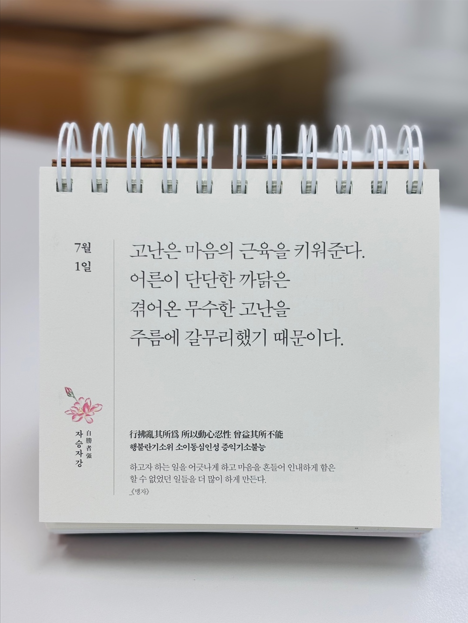 7월
1일
고난은 마음의 근육을 키워준다.
어른이 단단한 까닭은
겪어온 무수한 고난을
주름에 갈무리했기 때문이다.
自勝者強
자승자강
行拂亂其所爲 所以動心忍性 曾益其所不能
행불란기소위 소이동심인성 증익기소불능
하고자 하는 일을 어긋나게 하고 마음을 흔들어 인내하게 함은
할 수 없었던 일들을 더 많이 하게 만든다.
_《맹자》